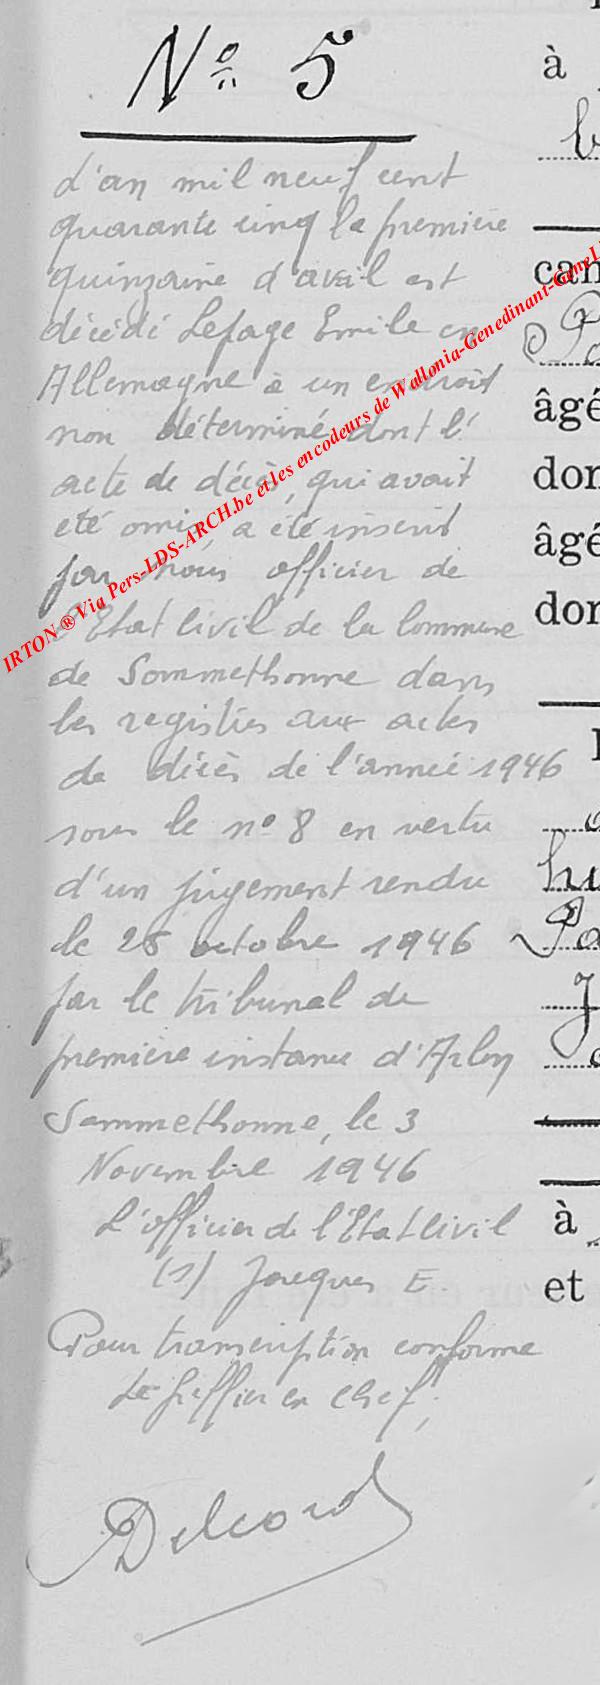 N° 5
d'an mil neuf cent
quarante cinq la première
quinzaine d'avril est
décédé Lepage Emile en
Allemagne à un endroit
non déterminé dont l'
acte de décès, qui avait
été omis, a été inscrit
par nous officier de
l'Etat Civil de la Commune
de Sommethonne dans
les registres aux actes
de décès de l'année 1946
sous le n° 8 en vertu
d'un jugement rendu
le 25 octobre 1946
par le tribunal de
première instance d'Arlon
Sommethonne, le 3
Novembre 1946
L'officier de l'Etat Civil
(s) Jacques E.
Pour transcription conforme
Le greffier en chef,
IRTON ® Via Pers-LDS-ARCH.be et les encodeurs de Wallonia-Genedinant-GeneL
à
can
âgé
dom
âgé
dom
à
et